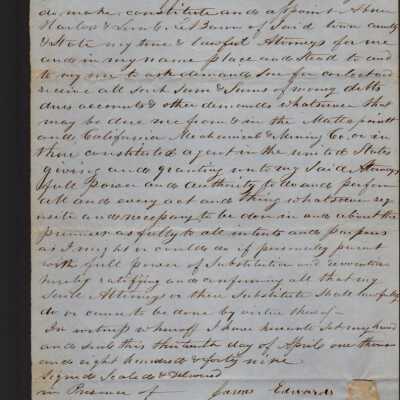 do, make constitute and appoint
& Le Baron of Said town county
& State my true & lawful Attorneys for me
and in my name place and Stead to and
to my use to ask demand Sue for collect and
receive all Such Sum & Sums of money debts
dues accounts & other demands whatsoever that
may be due me from & in the
and California Mechanical & Mining Co. or in
their constituted agent in the united States
giving and granting unto my Said Attorneys
full Power and Authority to do and perform
all and every act and thing whatsoever requ
isite and necessary to be don in and about the
premises as fully to all intents and purposes
as I might or could do if personly present
with full power of Substitution and revocation
hereby ratifying and confirming all that my
Said Attorneys or their Substitute Shall lawfully
do or cause to be done by virtue thereof—
In witness whereof I have hereunto Set my hand
and Seals this thirteenth day of April one thous
and eight hundred & forty nine
Signed Sealed & delivered
in Presence of James Edwards